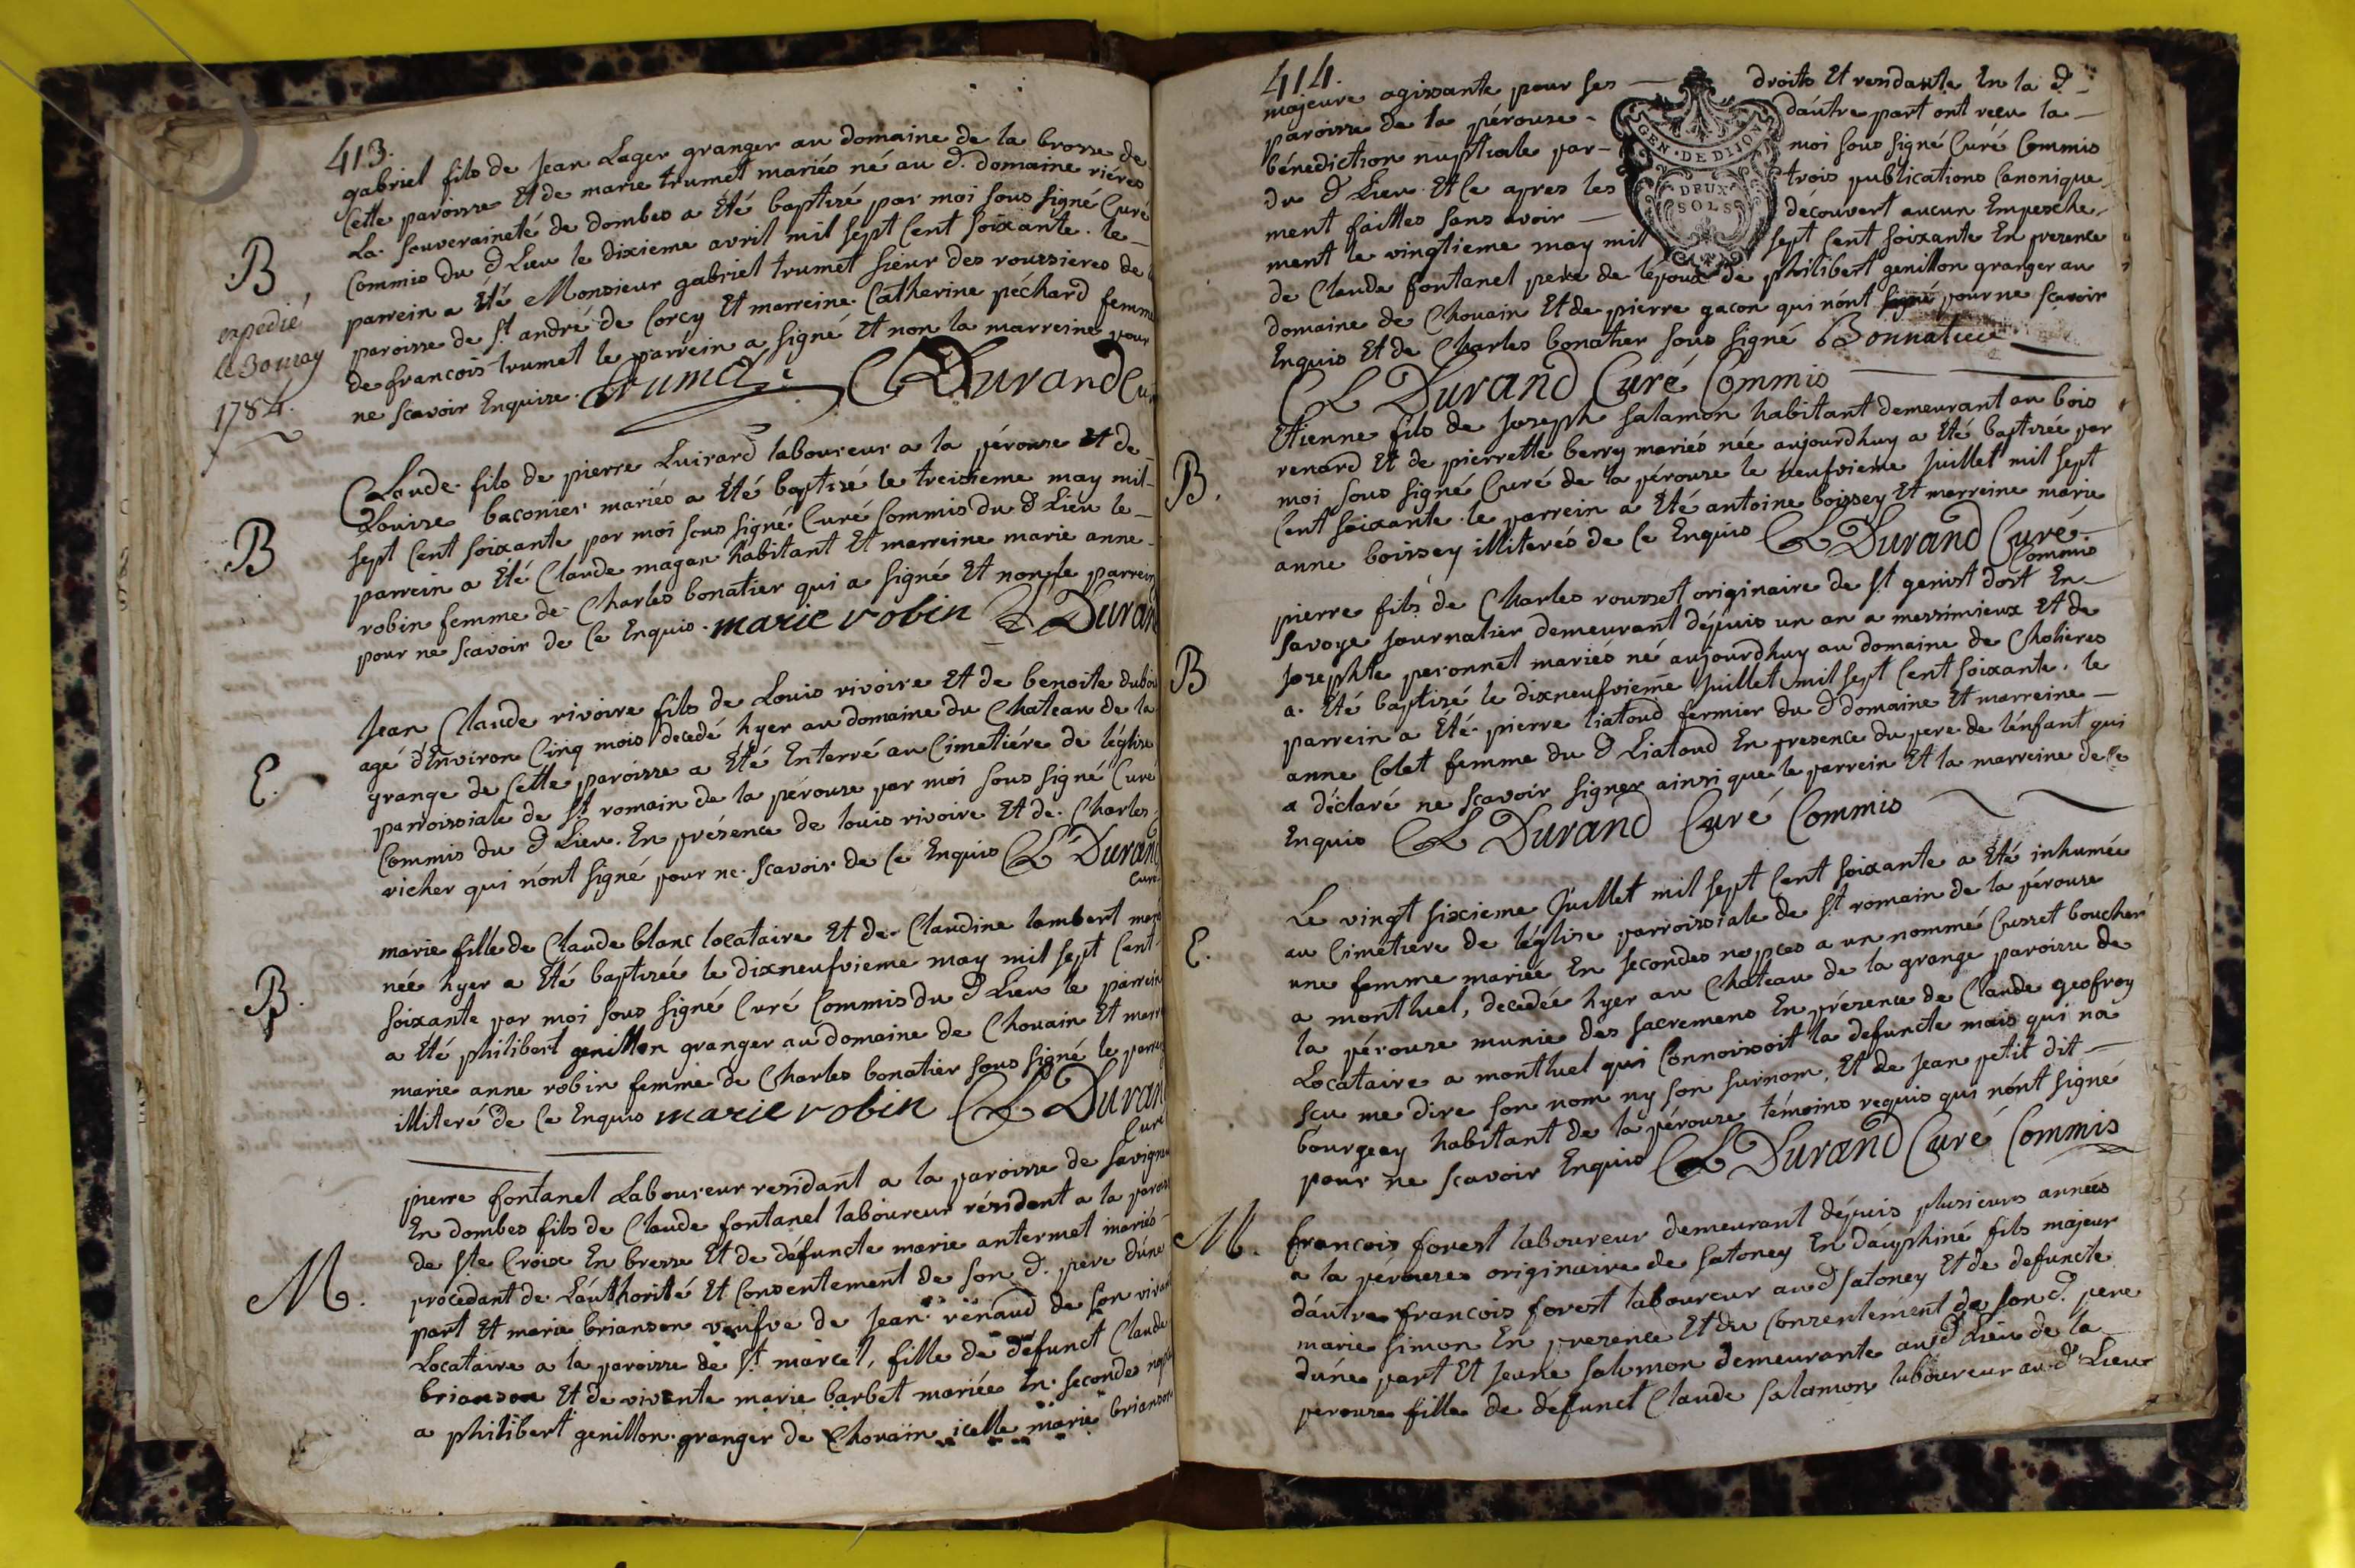 413.
gabriel fils de Jean Lager granger au domaine de la brosse de
Cette paroisse Et de marie trumet mariés né au d. domaine riéres
La souveraineté de dombes a Eté baptisé par moi sous signé Curé
B
Commis du d Lieu le dixieme avril mil sept Cent soixante. le
parrein a Eté Monsieur gabriel trumet sieur des roussieres de
expedié
paroisse de st andré de Corcy Et marreine Catherine péchard femme
le 30 may
de francois trumet le parrein a signé Et non la marreine pour
1784.
ne scavoir Enquise. trumet C L Durand Cu
Claude fils de pierre Luirard laboureur a la pérouse Et de
Louise baconier mariés a Eté baptisé le treisieme may mil
B
sept Cent soixante par moi sous signé Curé Commis du d Lieu le
parrein a Eté Claude magan habitant Et marreine marie anne
robin femme de Charles bonatier qui a signé Et non le parrein
pour ne scavoir de Ce Enquis. marie robin C L Duran
Jean Claude rivoire fils de Louis rivoire Et de benoite dubo
agé d'Environ Cinq mois decedé hyer au domaine du Chateau de la
E.
grange de Cette paroisse a Eté Enterré au Cimetiére de léglise
parroissiale de st romain de la pérouse par moi sous signé Curé
Commis du d Lieu. En présence de louis rivoire Et de Charles
richer qui n'ont signé pour ne scavoir de Ce Enquis C L Durand
Curé
marie fille de Claude blanc locataire Et de Claudine lambert mari
née hyer a Eté baptisée le dixneufvieme may mil sept Cent
B.
soixante par moi sous signé Curé Commis du d Lieu le parrein
a Eté philibert genillon granger au domaine de Chouain Et marr
marie anne robin femme de Charles bonatier sous signé le parrein
illiteré de Ce Enquis marie robin C L Duran
Curé
pierre fontanel Laboureur residant a la paroisse de savigne
En dombes fils de Claude fontanel laboureur résident a la parois
de ste Croix En bresse Et de défuncte marie antermet mariés
M.
procedant de L'authorité Et Consentement de son d. pere d'une
part Et marie brianson veufve de Jean renaud de son vivant
Locataire a la paroisse de st marcel, fille de défunct Claude
brianson Et de vivante marie barbet mariée En seconde nopces
a philibert genillon granger de Chouain icelle marie brianson
414.
majeure agissante pour ses droits Et residante En la d
paroisse de la pérouse d'autre part ont reçu la
bénediction nuptiale par moi sous signé Curé Commis
du d Lieu Et Ce apres les trois publications Canonique
ment faittes sans avoir découvert aucun Empesche
ment le vingtieme may mil sept Cent soixante En presence
de Claude fontanel pere de lépoux de philibert genillon granger au
domaine de Chouain Et de pierre gacon qui n'ont signé pour ne scavoir
Enquis Et de Charles bonatier sous signé Bonnatier
C L Durand Curé Commis
GEN · DE DIJON
DEUX
SOLS
Etienne fils de Joseph salamon habitant demeurant au bois
renard Et de pierrette berry mariés née aujourdhuy a Eté baptisée par
B.
moi sous signé Curé de la pérouse le neufvieme Juillet mil sept
Cent soixante. le parrein a Eté antoine boissey Et marreine marie
anne boissey illiterés de Ce Enquis C L Durand Curé
Commis
pierre fils de Charles rousset originaire de st genist dost En
savoye Journalier demeurant dépuis un an a messimieux Et de
B
Josephte peronnet mariés né aujourdhuy au domaine de Cholieres
a Eté baptisé le dixneufvieme Juillet mil sept Cent soixante. le
parrein a Eté pierre liatoud fermier du d domaine Et marreine
anne Colet femme du d Liatoud En presence du pere de lénfant qui
a déclaré ne scavoir signer ainsi que le parrein Et la marreine de Ce
Enquis C L Durand Curé Commis
Le vingt sixieme Juillet mil sept Cent soixante a Eté inhumée
au Cimetiere de léglise parroissiale de st romain de la pérouse
E.
une femme mariée En secondes nopces a un nommé Cusset boucher
a montluel, decedée hyer au Chateau de la grange paroisse de
la pérouse munie des sacremens En présence de Claude geofroy
Locataire a montluel qui Connoissoit la defuncte mais qui na
scu me dire son nom ny son surnom, Et de Jean petit dit
bourgeay habitant de la pérouse témoins requis qui n'ont signé
pour ne scavoir Enquis C L Durand Curé Commis
M.
francois forest laboureur demeurant dépuis plusieurs années
a la pérouse originaire de satoney En dauphiné fils majeur
d'autre francois forest laboureur au d satoney Et de defuncte
marie simon En presence Et du Consentement de son d. pere
d'une part Et Jeane salomon demeurante au d Lieu de la
perouse fille de défunct Claude salamon laboureur au d Lieu